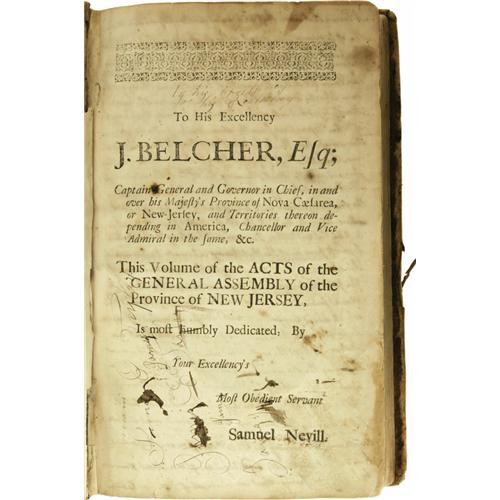 To His Excellency
J. BELCHER, Eſq;
Captain General and Governor in Chief, in and
over his Majeſty's Province of Nova Cæſarea,
or New-Jerſey, and Territories thereon de-
pending in America, Chancellor and Vice
Admiral in the ſame, &c.
This Volume of the ACTS of the
GENERAL ASSEMBLY of the
Province of NEW JERSEY,
Is moſt humbly Dedicated: By
Your Excellency's
Moſt Obedient Servant
Samuel Nevill.